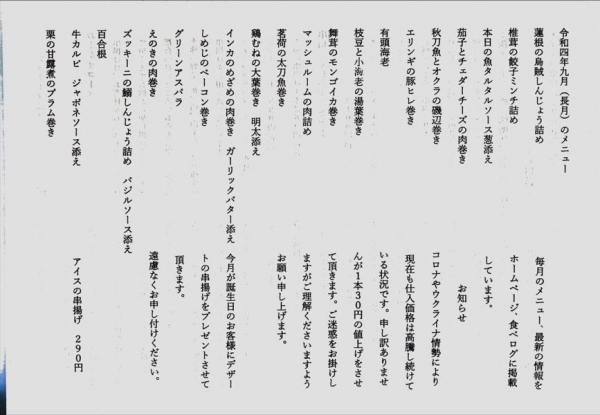 令和四年九月（長月）のメニュー
蓮根の烏賊しんじょう詰め
椎茸の餃子ミンチ詰め
本日の魚タルタルソース葱添え
茄子とチェダーチーズの肉巻き
秋刀魚とオクラの磯辺巻き
エリンギの豚ヒレ巻き
有頭海老
枝豆と小海老の湯葉巻き
舞茸のモンゴイカ巻き
マッシュルームの肉詰め
茗荷の太刀魚巻き
鶏むねの大葉巻き　明太添え
インカのめざめの肉巻き　ガーリックバター添え
しめじのベーコン巻き
グリーンアスパラ
えのきの肉巻き
ズッキーニの鱚しんじょう詰め　バジルソース添え
百合根
牛カルビ　ジャポネソース添え
栗の甘露煮のプラム巻き
毎月のメニュー、最新の情報を
ホームページ、食べログに掲載
しています。
お知らせ
コロナやウクライナ情勢により
現在も仕入価格は高騰し続けて
いる状況です。申し訳ありませ
んが１本３０円の値上げをさせ
て頂きます。ご迷惑をお掛けし
ますがご理解くださいますよう
お願い申し上げます。
今月が誕生日のお客様にデザー
トの串揚げをプレゼントさせて
頂きます。
遠慮なくお申し付けください。
アイスの串揚げ　２９０円